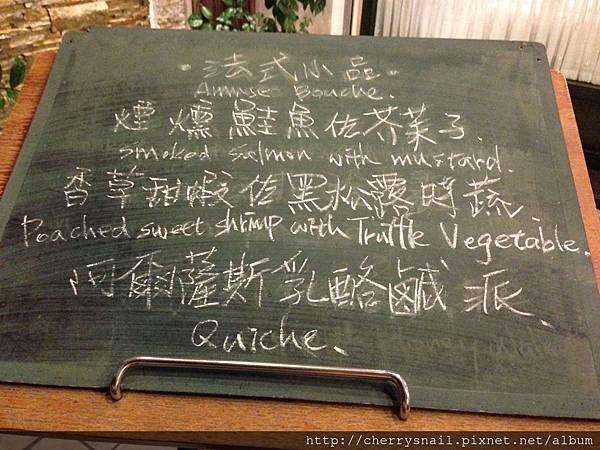 ·法式小品·
Ammuse Bouche.
煙燻鮭魚佐芥茉子.
smoked salmon with mustard.
香草甜蝦佐黑松露時蔬.
Poached sweet shrimp with Truffle Vegetable.
阿爾薩斯乳酪鹹派、
Quiche、
http://cherrysnail.pixnet.net/album